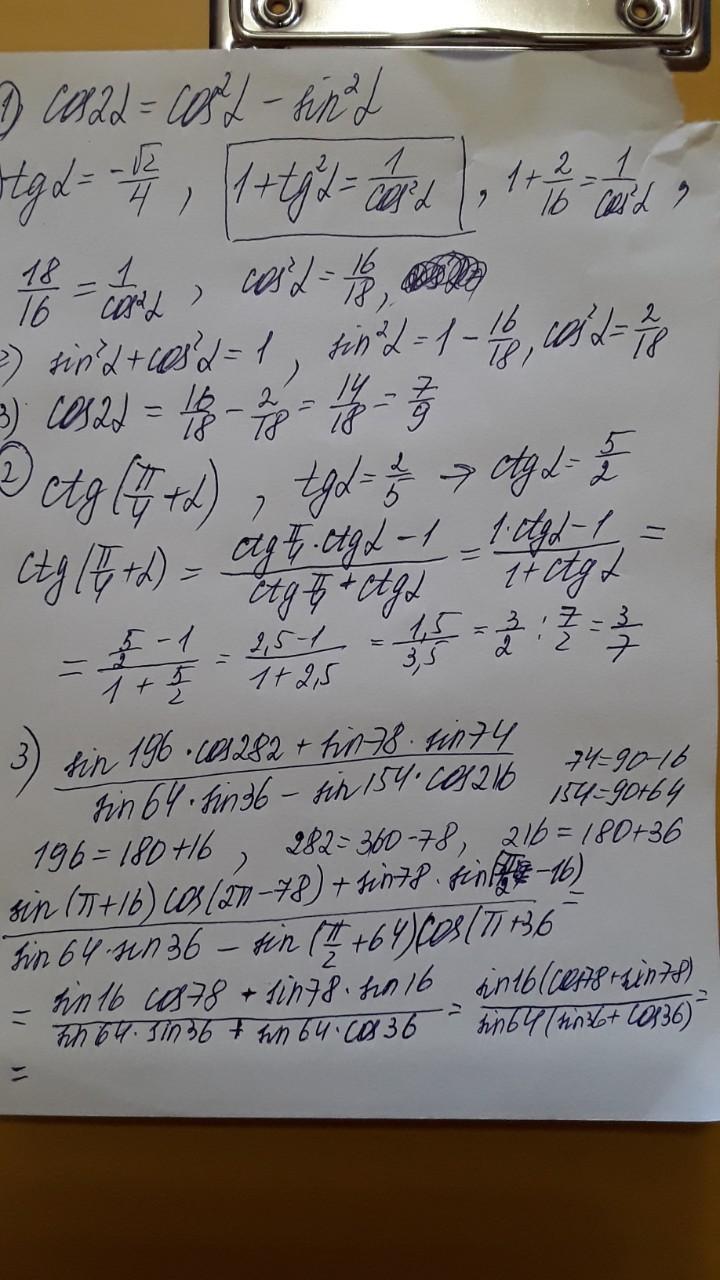 1) cos2α = cos²α - sin²α
tgα = -√2/4 , 1+tg²α = 1/cos²α , 1 + 2/16 = 1/cos²α ,
18/16 = 1/cos²α , cos²α = 16/18 ,
2) sin²α + cos²α = 1 , sin²α = 1 - 16/18 , cos²α = 2/18
3) cos2α = 16/18 - 2/18 = 14/18 = 7/9
2 ctg(π/4 + α) , tgα = 2/5 → ctgα = 5/2
ctg(π/4 + α) = (ctg π/4 · ctgα - 1)/(ctg π/4 + ctgα) = (1·ctgα - 1)/(1 + ctgα) =
= (5/2 - 1)/(1 + 5/2) = (2,5 - 1)/(1 + 2,5) = 1,5/3,5 = 3/2 : 7/2 = 3/7
3) (sin196 · cos282 + sin78 · sin74)/(sin64 · sin36 - sin154 · cos216) 74 = 90-16
154 = 90+64
196 = 180+16 , 282 = 360-78, 216 = 180+36
(sin(π+16) cos(2π-78) + sin78 · sin(π/2 - 16))/(sin64 · sin36 - sin(π/2 + 64) cos(π+36) =
= (sin16 cos78 + sin78 · sin16)/(sin64 · sin36 + sin64 · cos36) = sin16(cos78 + sin78)/sin64(sin36 + cos36) =
=